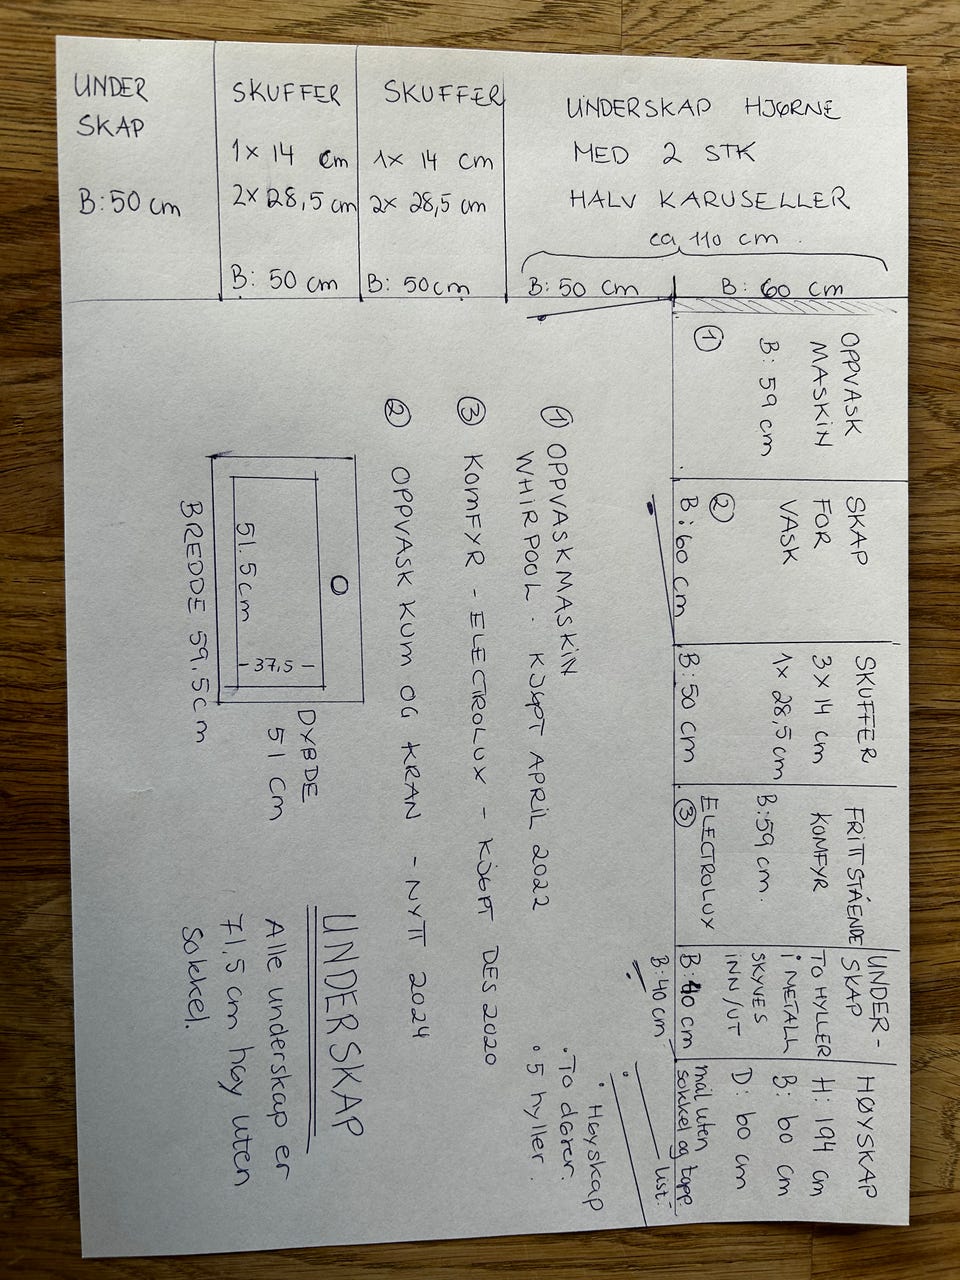 UNDER
SKAP
B: 50 cm
SKUFFER
1x 14 cm
2x 28,5 cm
B: 50 cm
SKUFFER
1x 14 cm
2x 28,5 cm
B: 50cm
UNDERSKAP HJØRNE
MED 2 STK
HALV KARUSELLER
ca 110 cm.
B: 50 cm
B: 60 cm
OPPVASK
MASKIN
B: 59 cm
1
SKAP
FOR
VASK
2
B: 60 cm
SKUFFER
3x14 cm
1x 28,5cm
B: 50 cm
FRITTSTÅENDE
KOMFYR
B:59 cm.
ELECTROLUX
3
UNDER-
SKAP
TO HYLLER
i METALL
SKYVES
INN/UT
B: 40 cm
B:40 cm
HØYSKAP
H: 194 cm
B: 60 cm
D: 60 cm
mål uten
sokkel og topp
list.
• Høyskap
• To dører.
• 5 hyller.
1 OPPVASKMASKIN
WHIRPOOL. KJØPT APRIL 2022
3 KOMFYR - ELECTROLUX - KJØPT DES 2020
2 OPPVASK KUM OG KRAN - NYTT 2024
51.5cm
-37,5-
BREDDE 59.5cm
DYBDE
51 cm
UNDERSKAP
Alle underskap er
71,5 cm høy uten
sokkel.